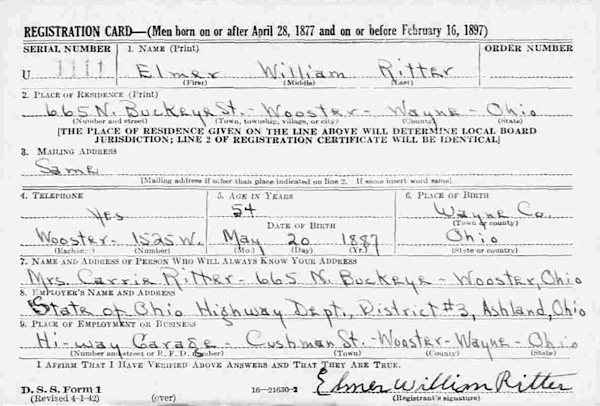 REGISTRATION CARD—(Men born on or after April 28, 1877 and on or before February 16, 1897)
SERIAL NUMBER 1. NAME (Print) ORDER NUMBER
U 1111 Elmer William Ritter
(First) (Middle) (Last)
2. PLACE OF RESIDENCE (Print)
665 N. Buckeye St. - Wooster - Wayne - Ohio
(Number and street) (Town, township, village, or city) (County) (State)
[THE PLACE OF RESIDENCE GIVEN ON THE LINE ABOVE WILL DETERMINE LOCAL BOARD
JURISDICTION; LINE 2 OF REGISTRATION CERTIFICATE WILL BE IDENTICAL]
3. MAILING ADDRESS
Same
[Mailing address if other than place indicated on line 2. If same insert word same]
4. TELEPHONE 5. AGE IN YEARS 6. PLACE OF BIRTH
Yes 54 Wayne Co.
DATE OF BIRTH (Town or county)
Wooster - 1525 W. May 20 1887 Ohio
(Exchange) (Number) (Mo.) (Day) (Yr.) (State or country)
7. NAME AND ADDRESS OF PERSON WHO WILL ALWAYS KNOW YOUR ADDRESS
Mrs. Carrie Ritter - 665 N. Buckeye - Wooster, Ohio
8. EMPLOYER'S NAME AND ADDRESS
State of Ohio Highway Dept., District #3, Ashland, Ohio
9. PLACE OF EMPLOYMENT OR BUSINESS
Hi-way Garage - Cushman St. - Wooster - Wayne - Ohio
(Number and street or R. F. D. number) (Town) (County) (State)
I AFFIRM THAT I HAVE VERIFIED ABOVE ANSWERS AND THAT THEY ARE TRUE.
D. S. S. Form 1
(Revised 4-1-42) (over) 16—21630-2 Elmer William Ritter
(Registrant's signature)